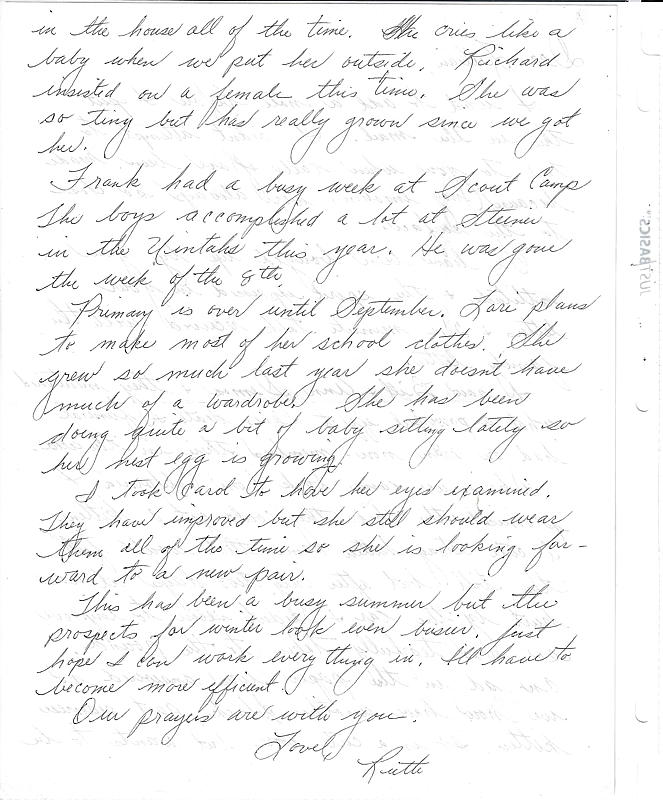 in the house all of the time. She cries like a
baby when we put her outside. Richard
insisted on a female this time. She was
so tiny but has really grown since we got
her.
Frank had a busy week at Scout Camp
The boys accomplished a lot at Steiner
in the Uintahs this year. He was gone
the week of the 8th.
Primary is over until September. Lari plans
to make most of her school clothes. She
grew so much last year she doesn't have
much of a wardrobe. She has been
doing quite a bit of baby sitting lately so
her nest egg is growing.
I took Carol to have her eyes examined.
They have improved but she still should wear
them all of the time so she is looking for-
ward to a new pair.
This has been a busy summer but the
prospects for winter look even busier. Just
hope I can work everything in. I'll have to
become more efficient.
Our prayers are with you.
Love,
Ruth
JUSTBASICS